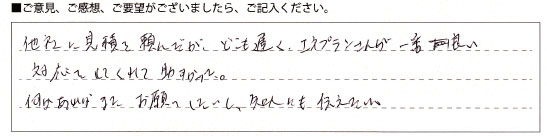 ■ご意見、ご感想、ご要望がございましたら、ご記入ください。
他社に見積を頼んだが、どこも遅く、エスプランさんが一番良い
対応をしてくれて助かった。
何かあればまたお願いしたいし、知人にも伝えたい。